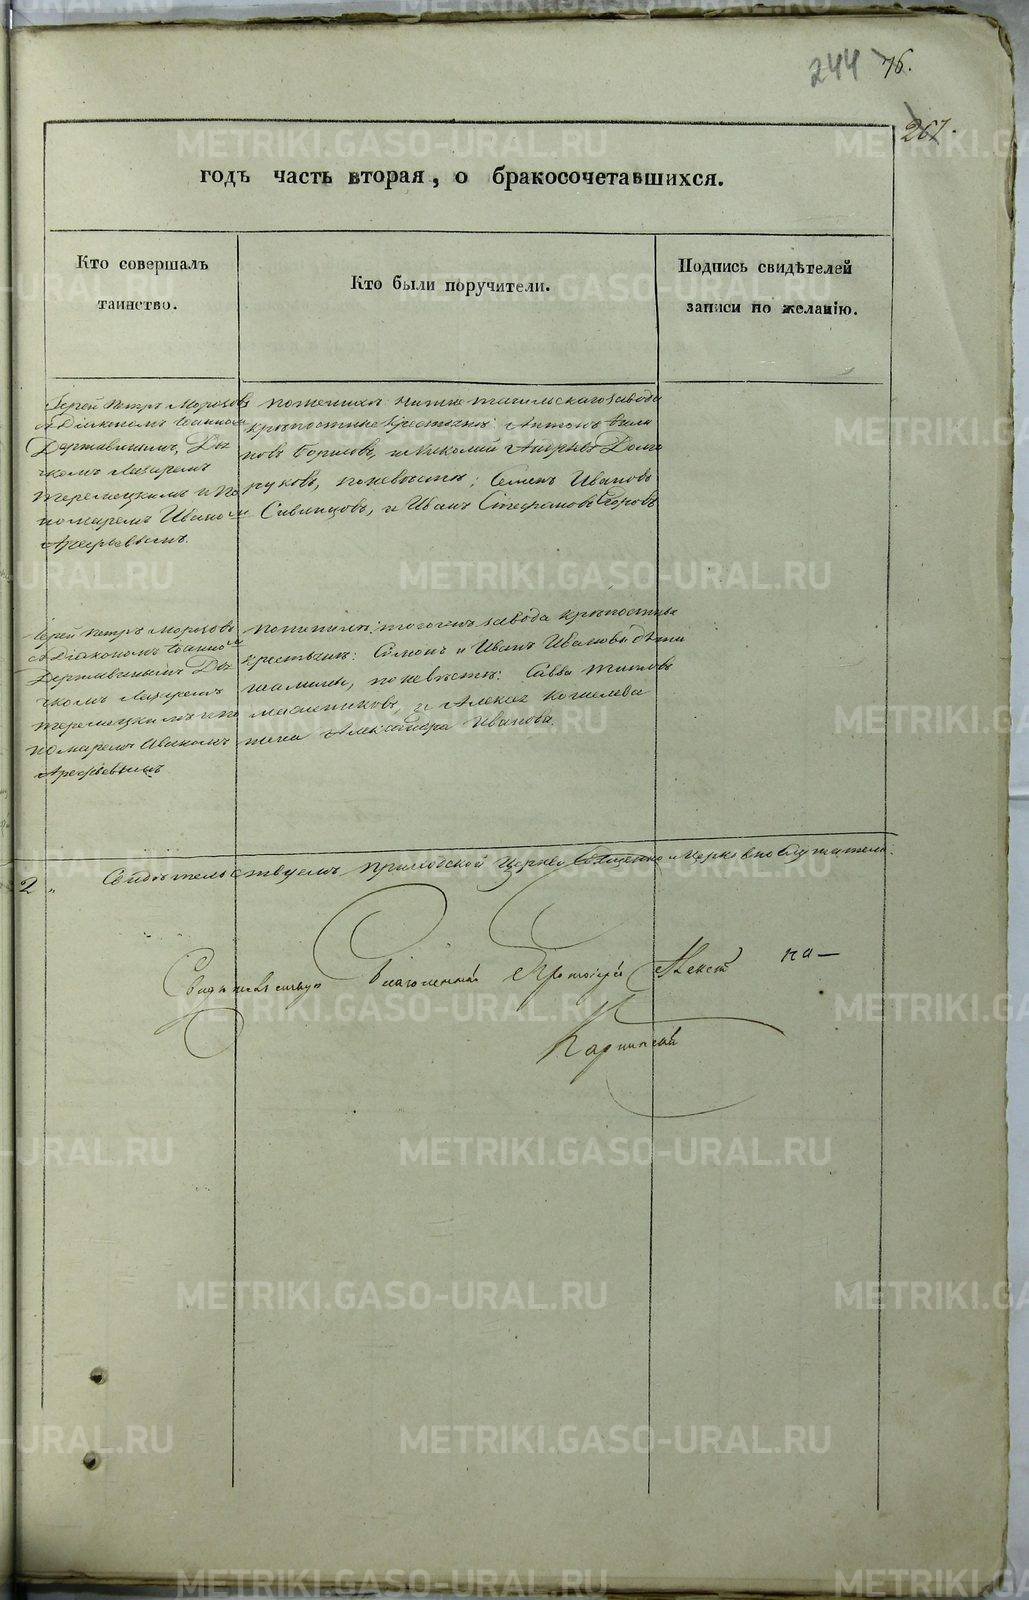 244 76.
267.
годъ часть вторая, о бракосочетавшихся.
Кто совершалъ
таинство.
Кто были поручители.
Подпись свидѣтелей
записи по желанію.
Іерей Петръ Морозовъ
съ Діакономъ Іоанномъ
Державинымъ, Дья
чкомъ Лазаремъ
Теремецкимъ и По
номаремъ Иваномъ
Арефьевымъ.
По женихѣ: Нижнетагильскаго завода
крѣпостные крестьяне: Антонъ
новъ Борисовъ, и Николай Андреевъ Долго
руковъ, по невѣстѣ; Семенъ Ивановъ
Савинцовъ, и Иванъ Стефановъ Егоровъ
Іерей Петръ Морозовъ
съ Діакономъ Іоанномъ
Державинымъ Дья
чкомъ Лазаремъ
Теремецкимъ и По
номаремъ Иваномъ
Арефьевымъ
По женихѣ: тогожъ завода крѣпостные
крестьяне: Симонъ и Иванъ Ивановы дѣти
по невѣстѣ: Савва Титовъ
Масленниковъ, и
Александра Иванова
2 " Свидѣтельствуемъ Приходской Церкви Священно и Церковнослужители.
Свидѣтельствую Благочинный Протоіерей Алексѣй